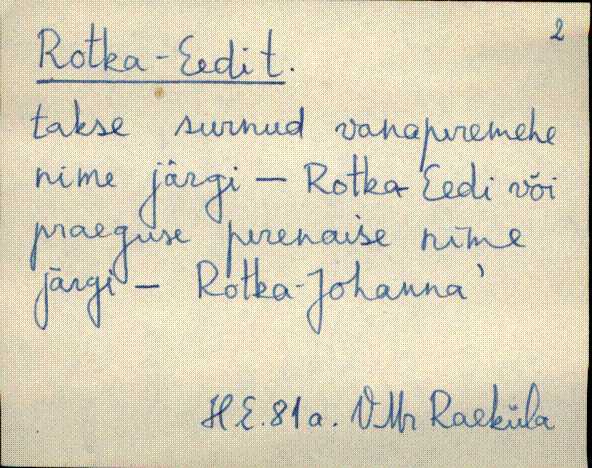 2
Rotka-Eedi t.
takse surnud vanaperemehe
nime järgi – Rotka Eedi või
praeguse perenaise nime
järgi – Rotka-Johanna'
H E. 81 a. VMr Raeküla